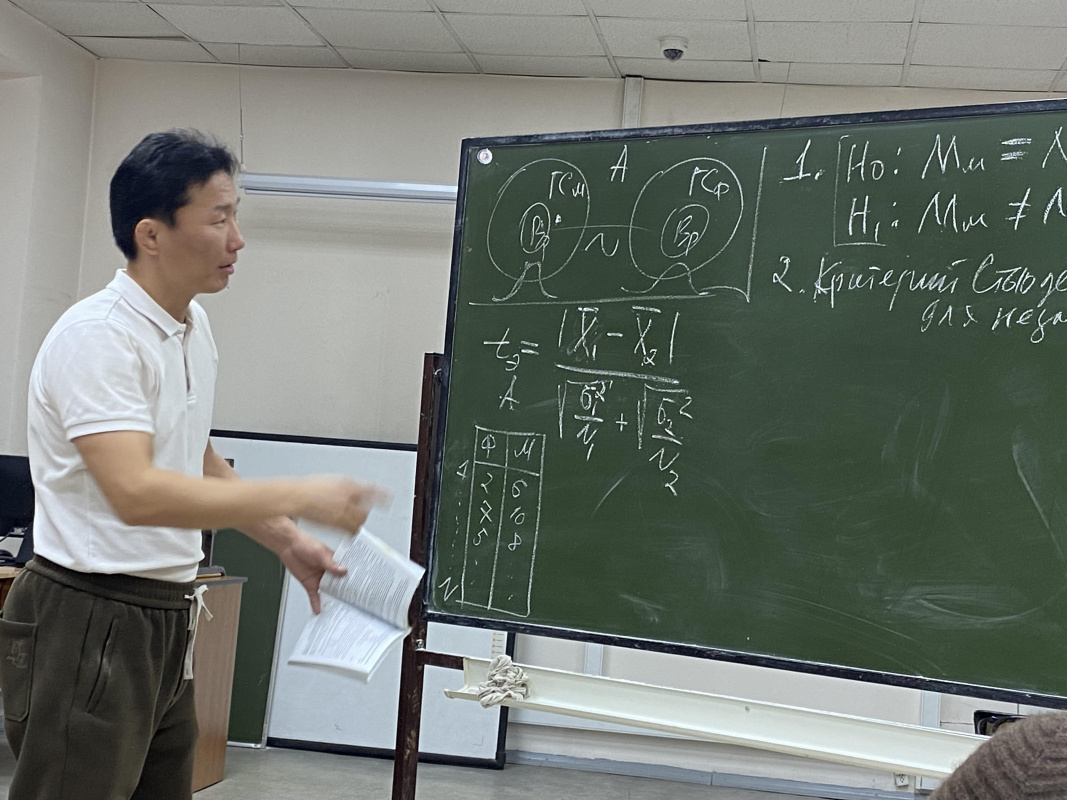 A
ГСм
ГСф
Вм
Вф
N
1. H₀: Mм = M
H₁: Mм ≠ M
2. Критерий Стьюде
для неза
tэ = |X̄₁ - X̄₂|
√σ₁²/N₁ + √σ₂²/N₂
A
Ф М
1 2 6
7 10
5 8
N